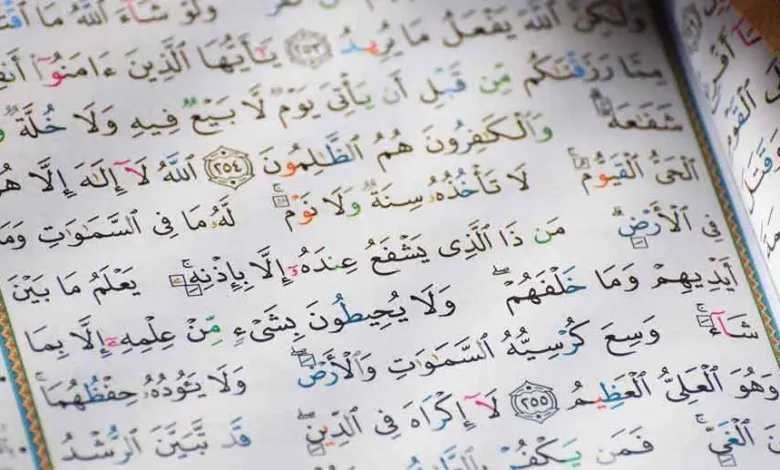 وَلَوْ شَآءَ ٱللَّهُ مَا
وَلَٰكِنَّ ٱللَّهَ يَفْعَلُ مَا يُرِيدُ ٢٥٣ يَٰٓأَيُّهَا ٱلَّذِينَ ءَامَنُوٓا۟
مِمَّا رَزَقْنَٰكُم مِّن قَبْلِ أَن يَأْتِىَ يَوْمٌ لَّا بَيْعٌ فِيهِ وَلَا خُلَّةٌ
شَفَٰعَةٌ ۗ وَٱلْكَٰفِرُونَ هُمُ ٱلظَّٰلِمُونَ ٢٥٤ ٱللَّهُ لَآ إِلَٰهَ إِلَّا هُوَ
ٱلْحَىُّ ٱلْقَيُّومُ ۚ لَا تَأْخُذُهُۥ سِنَةٌ وَلَا نَوْمٌ ۚ لَّهُۥ مَا فِى ٱلسَّمَٰوَٰتِ وَمَا
فِى ٱلْأَرْضِ ۗ مَن ذَا ٱلَّذِى يَشْفَعُ عِندَهُۥٓ إِلَّا بِإِذْنِهِۦ ۚ يَعْلَمُ مَا بَيْنَ
أَيْدِيهِمْ وَمَا خَلْفَهُمْ ۖ وَلَا يُحِيطُونَ بِشَىْءٍ مِّنْ عِلْمِهِۦٓ إِلَّا بِمَا
شَآءَ ۚ وَسِعَ كُرْسِيُّهُ ٱلسَّمَٰوَٰتِ وَٱلْأَرْضَ ۖ وَلَا يَـُٔودُهُۥ حِفْظُهُمَا ۚ
وَهُوَ ٱلْعَلِىُّ ٱلْعَظِيمُ ٢٥٥ لَآ إِكْرَاهَ فِى ٱلدِّينِ ۖ قَد تَّبَيَّنَ ٱلرُّشْدُ
مِنَ ٱلْغَىِّ ۚ فَمَن يَكْفُرْ